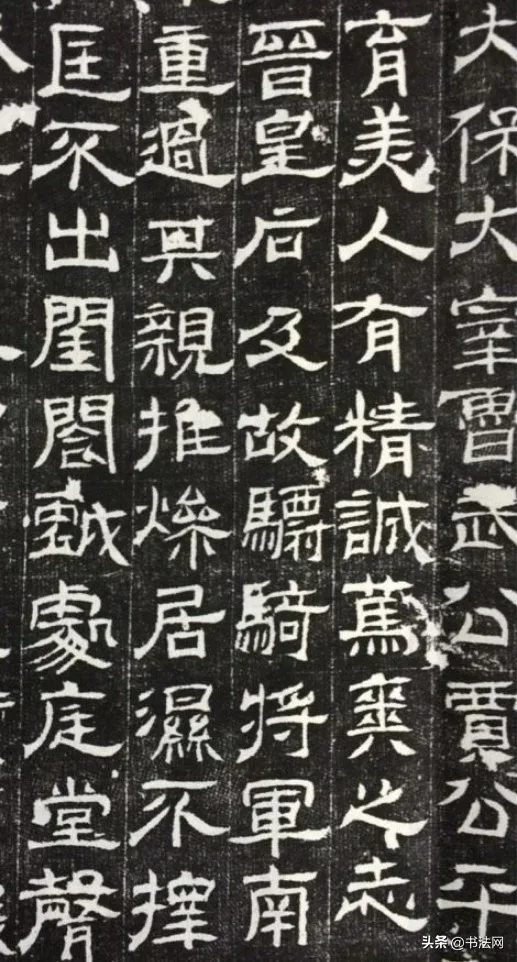 大保大宰魯武公賈公平
育美人有精誠篤爽之志
晉皇后及故驃騎將軍南
重過其親推燥居濕不擇
匡不出閨閤戲處庭堂聲
头条 @书法网